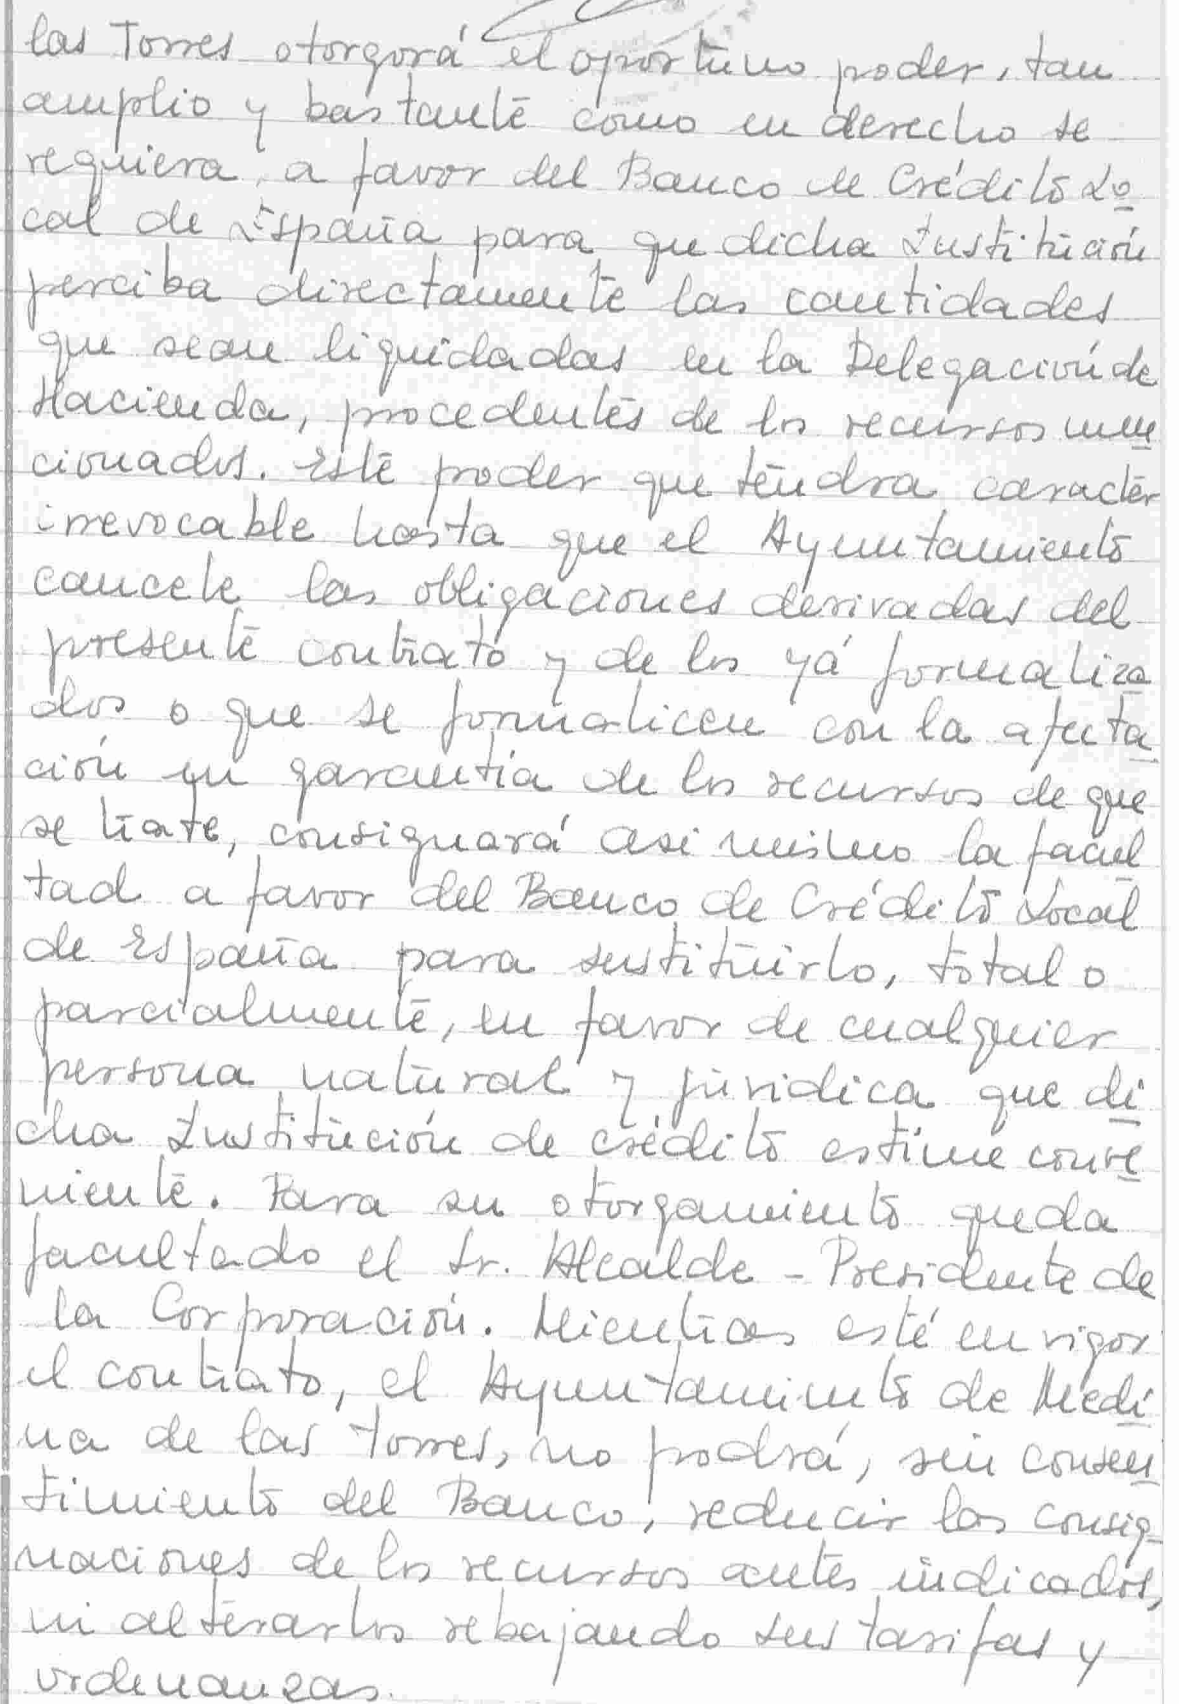 las Torres otorgorá el oportuno poder, tan
amplio y bastante como en derecho se
requiera, a favor del Banco de Crédito Lo
cal de España para que dicha Institución
perciba directamente las cantidades
que sean liquidadas en la Delegación de
Hacienda, procedentes de los recursos men
cionados. Este poder que tendra caracter
irrevocable hasta que el Ayuntamiento
cancele las obligaciones derivadas del
presente contrato y de los yá formaliza
dos o que se formalicen con la afecta
ción en garantía de los recursos de que
se trate, consignará asi mismo la facul
tad a favor del Banco de Crédito Local
de España para sustituirlo, total o
parcialmente, en favor de cualquier
persona natural y jurídica que di
cha Institución de crédito estime conve
niente. Para su otorgamiento queda
facultado el Sr. Alcalde - Presidente de
la Corporación. Mientras esté en vigor
el contrato, el Ayuntamiento de Medi
na de las Torres, no podrá, sin consen
timiento del Banco, reducir las consig-
naciones de los recursos antes indicados,
ni alterarlos rebajando sus tarifas y
ordenanzas.